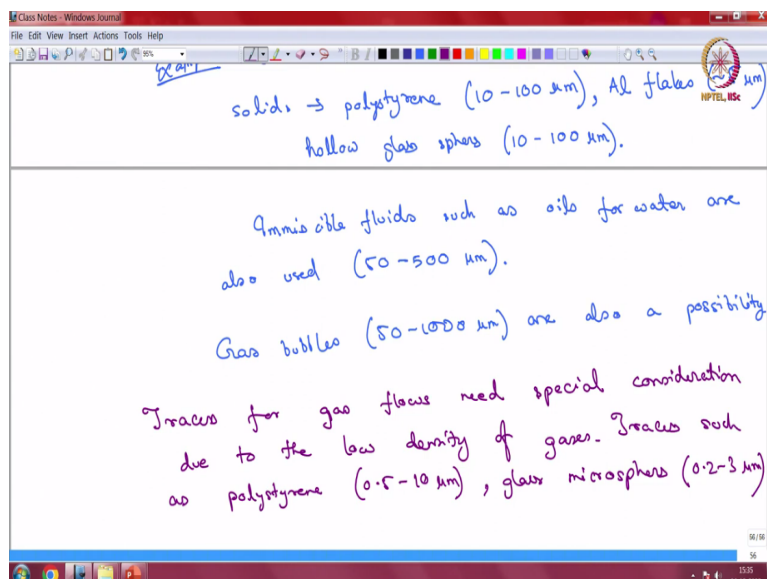 Class Notes - Windows Journal
File Edit View Insert Actions Tools Help
95%
B I
NPTEL, IISc
solids → polystyrene (10-100 μm), Al flakes ( μm)
hollow glass sphers (10-100 μm).
Immiscible fluids such as oils for water are
also used (50-500 μm).
Gas bubbles (50-1000 μm) are also a possibility
Traces for gas flows need special consideration
due to the low density of gases. Traces such
as polystyrene (0.5-10 μm), glass microsphers (0.2-3 μm)
56/56
56
15:35